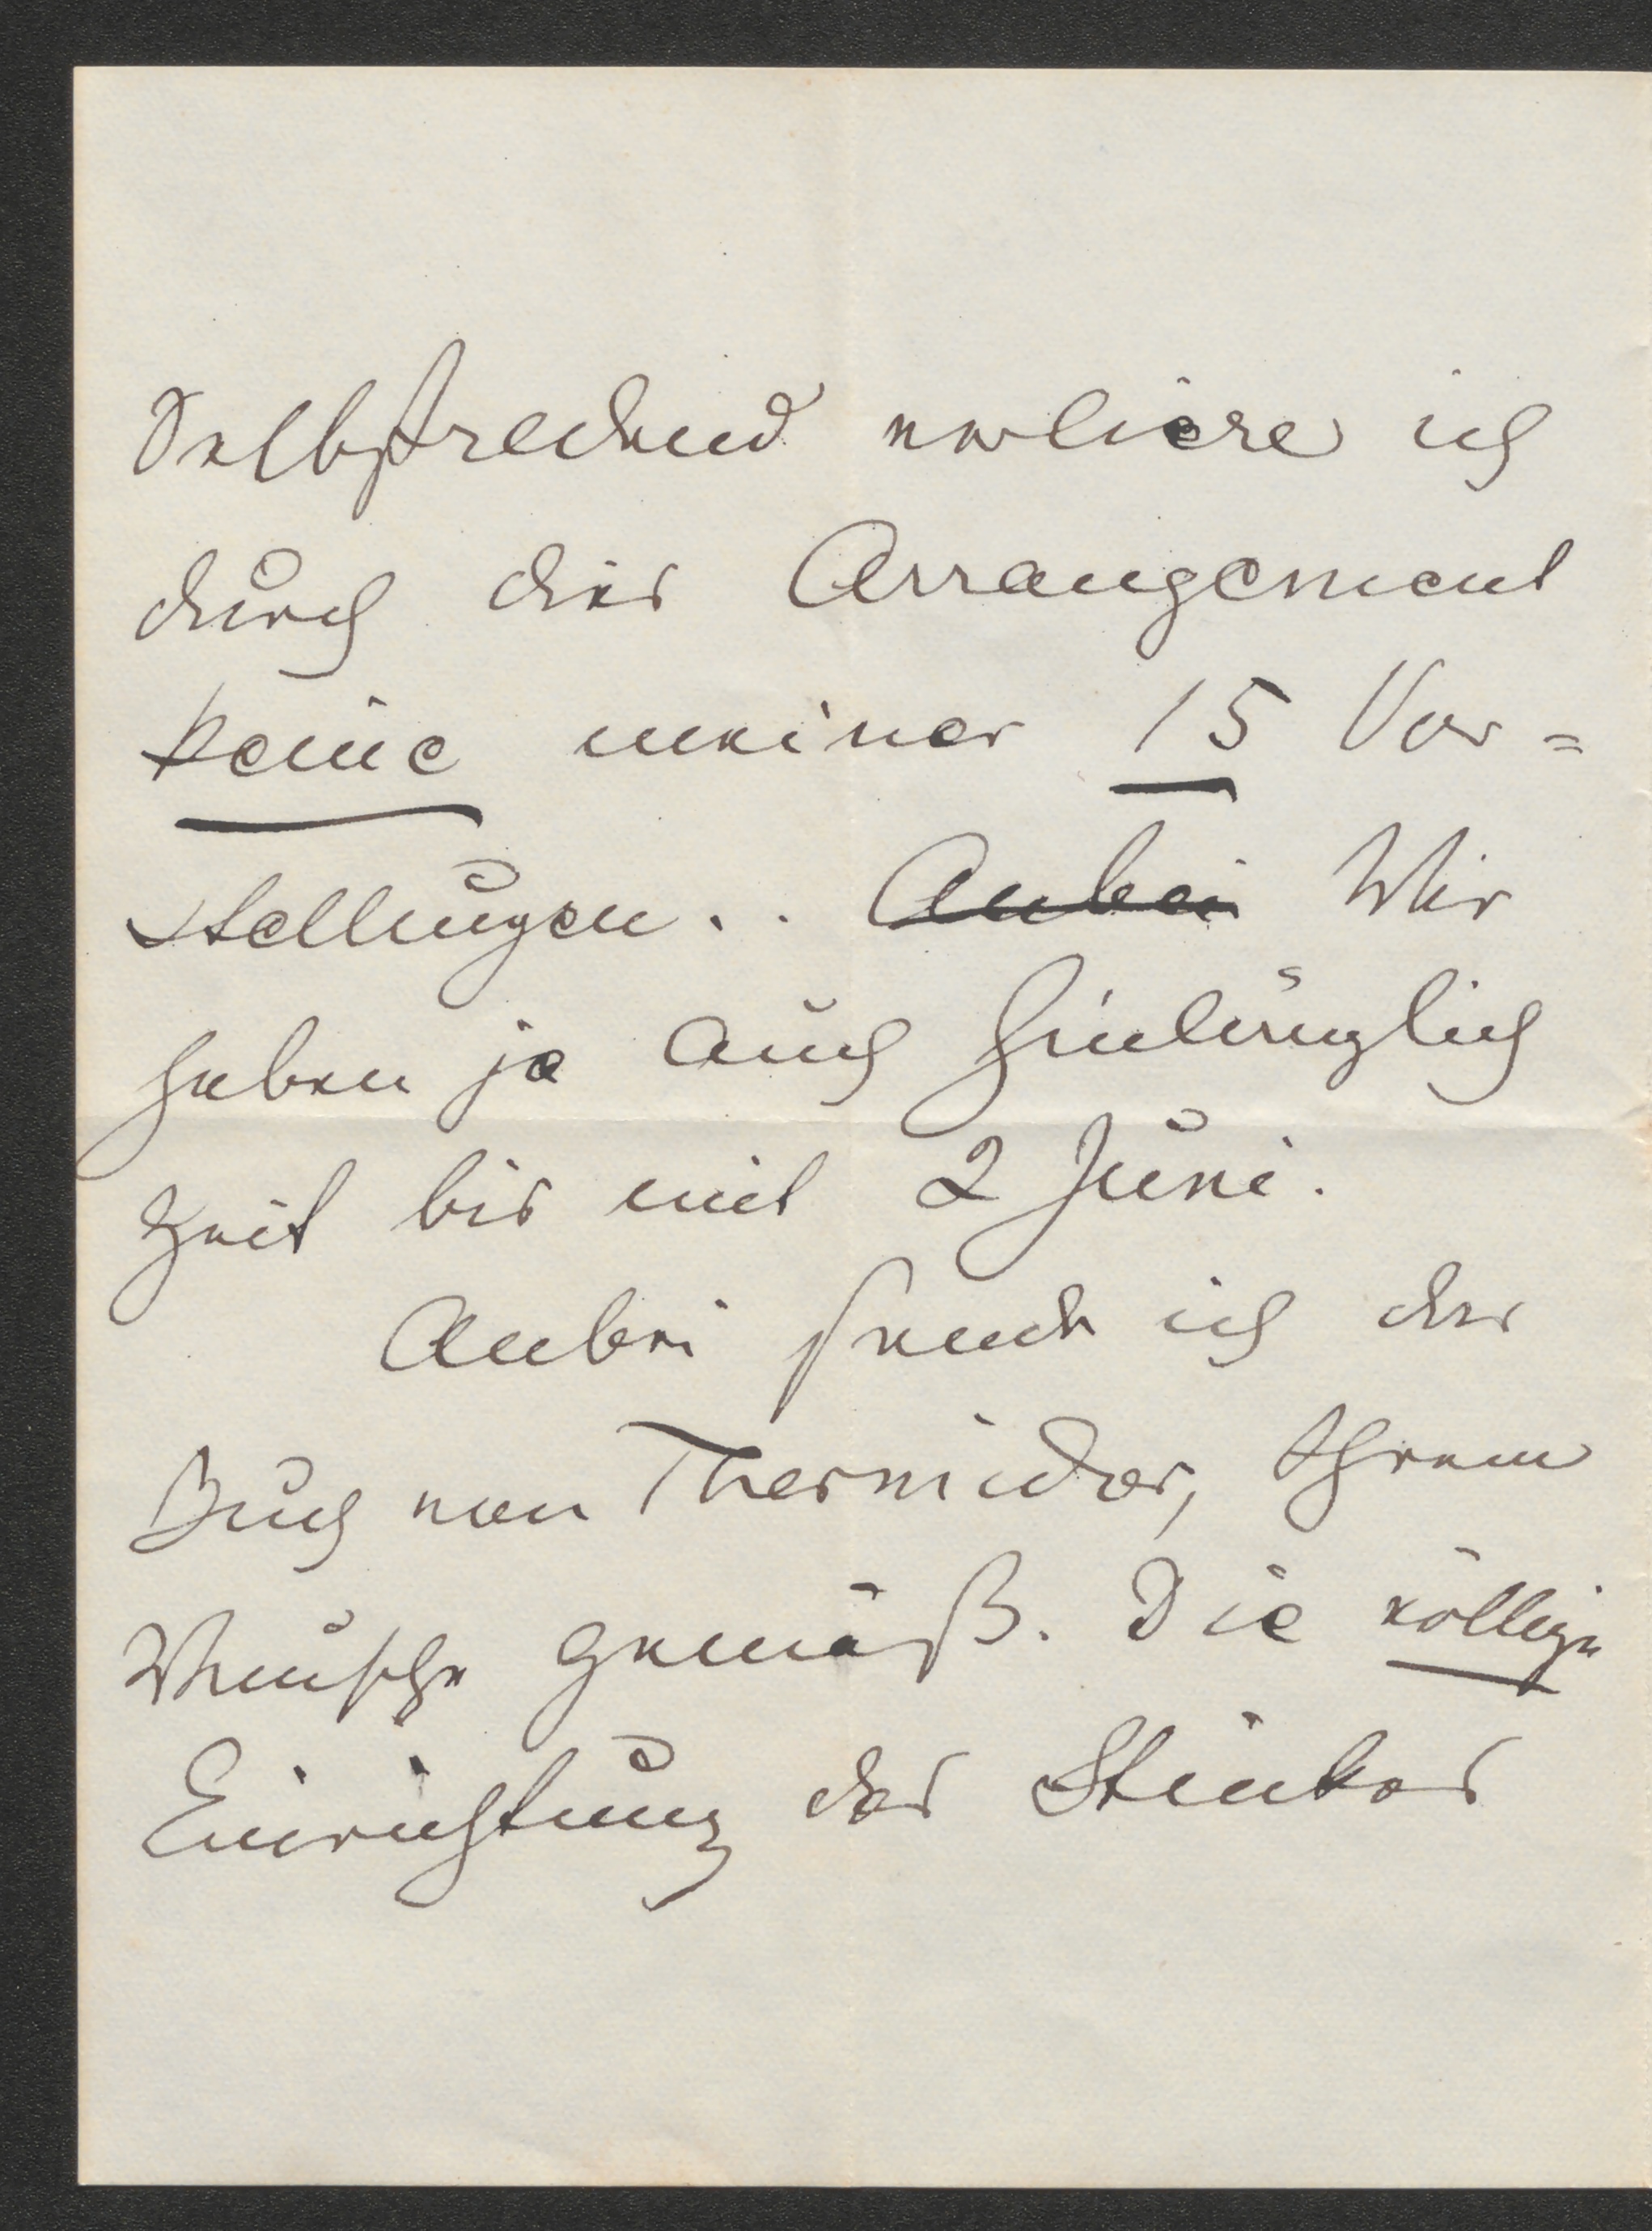 Selbstredend verliere ich
durch dies Arrangement
keine meiner 15 Vor=
stellungen.. Anbei Wir
haben ja auch hinlänglich
Zeit bis mit 2 Juni.
Anbei sende ich das
Buch von Thermidor, Ihrem
Wunsche gemäß. Die völlige
Einrichtung des Stückes